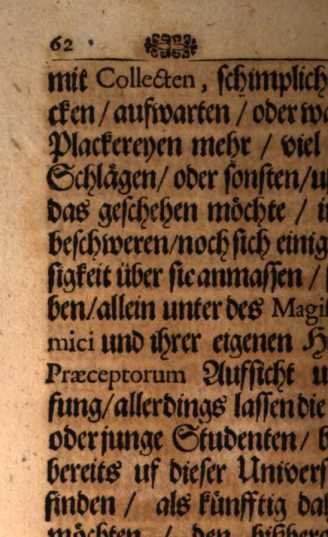 62
mit Collecten, schimplich
cken / aufwarten / oder wa
Plackereyen mehr / viel
Schlägen/ oder sonsten/u
das geschehen möchte / i
beschweren/noch sich einig
sigkeit über sie anmassen /
ben/allein unter des Magi
mici und ihrer eigenen H
Præceptorum Aufsicht u
fung/allerdings lassen die
oder junge Studenten/ b
bereits uf dieser Univers
finden / als künfftig da
möchten / den bißher